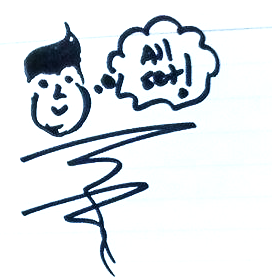 All
set!